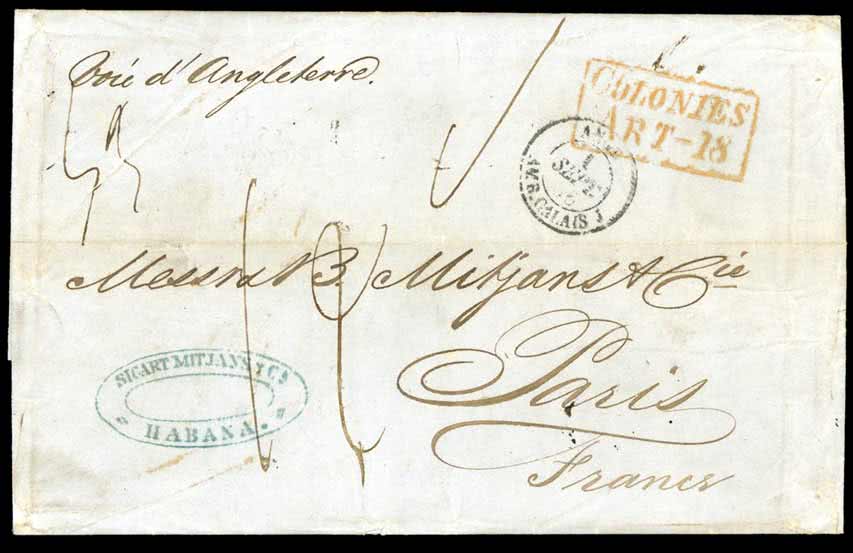 Voié d'Angleterre.
COLONIES
ART-18
ANGL.
1
SEPT
AMB. CALAIS J
Messrs B. Mitjans & Cie
Paris
France
SICART MITJANS Y Ca
HABANA.